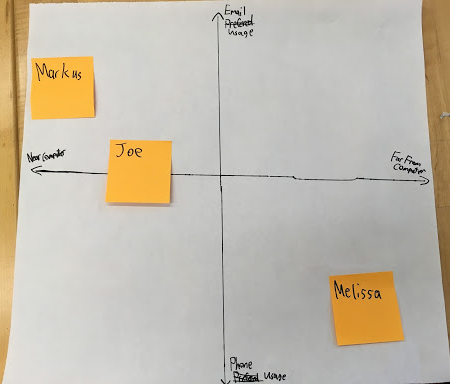 Email
Preferred
Usage
Markus
Joe
Near Computer
Far From
Computer
Melissa
Phone
Usage